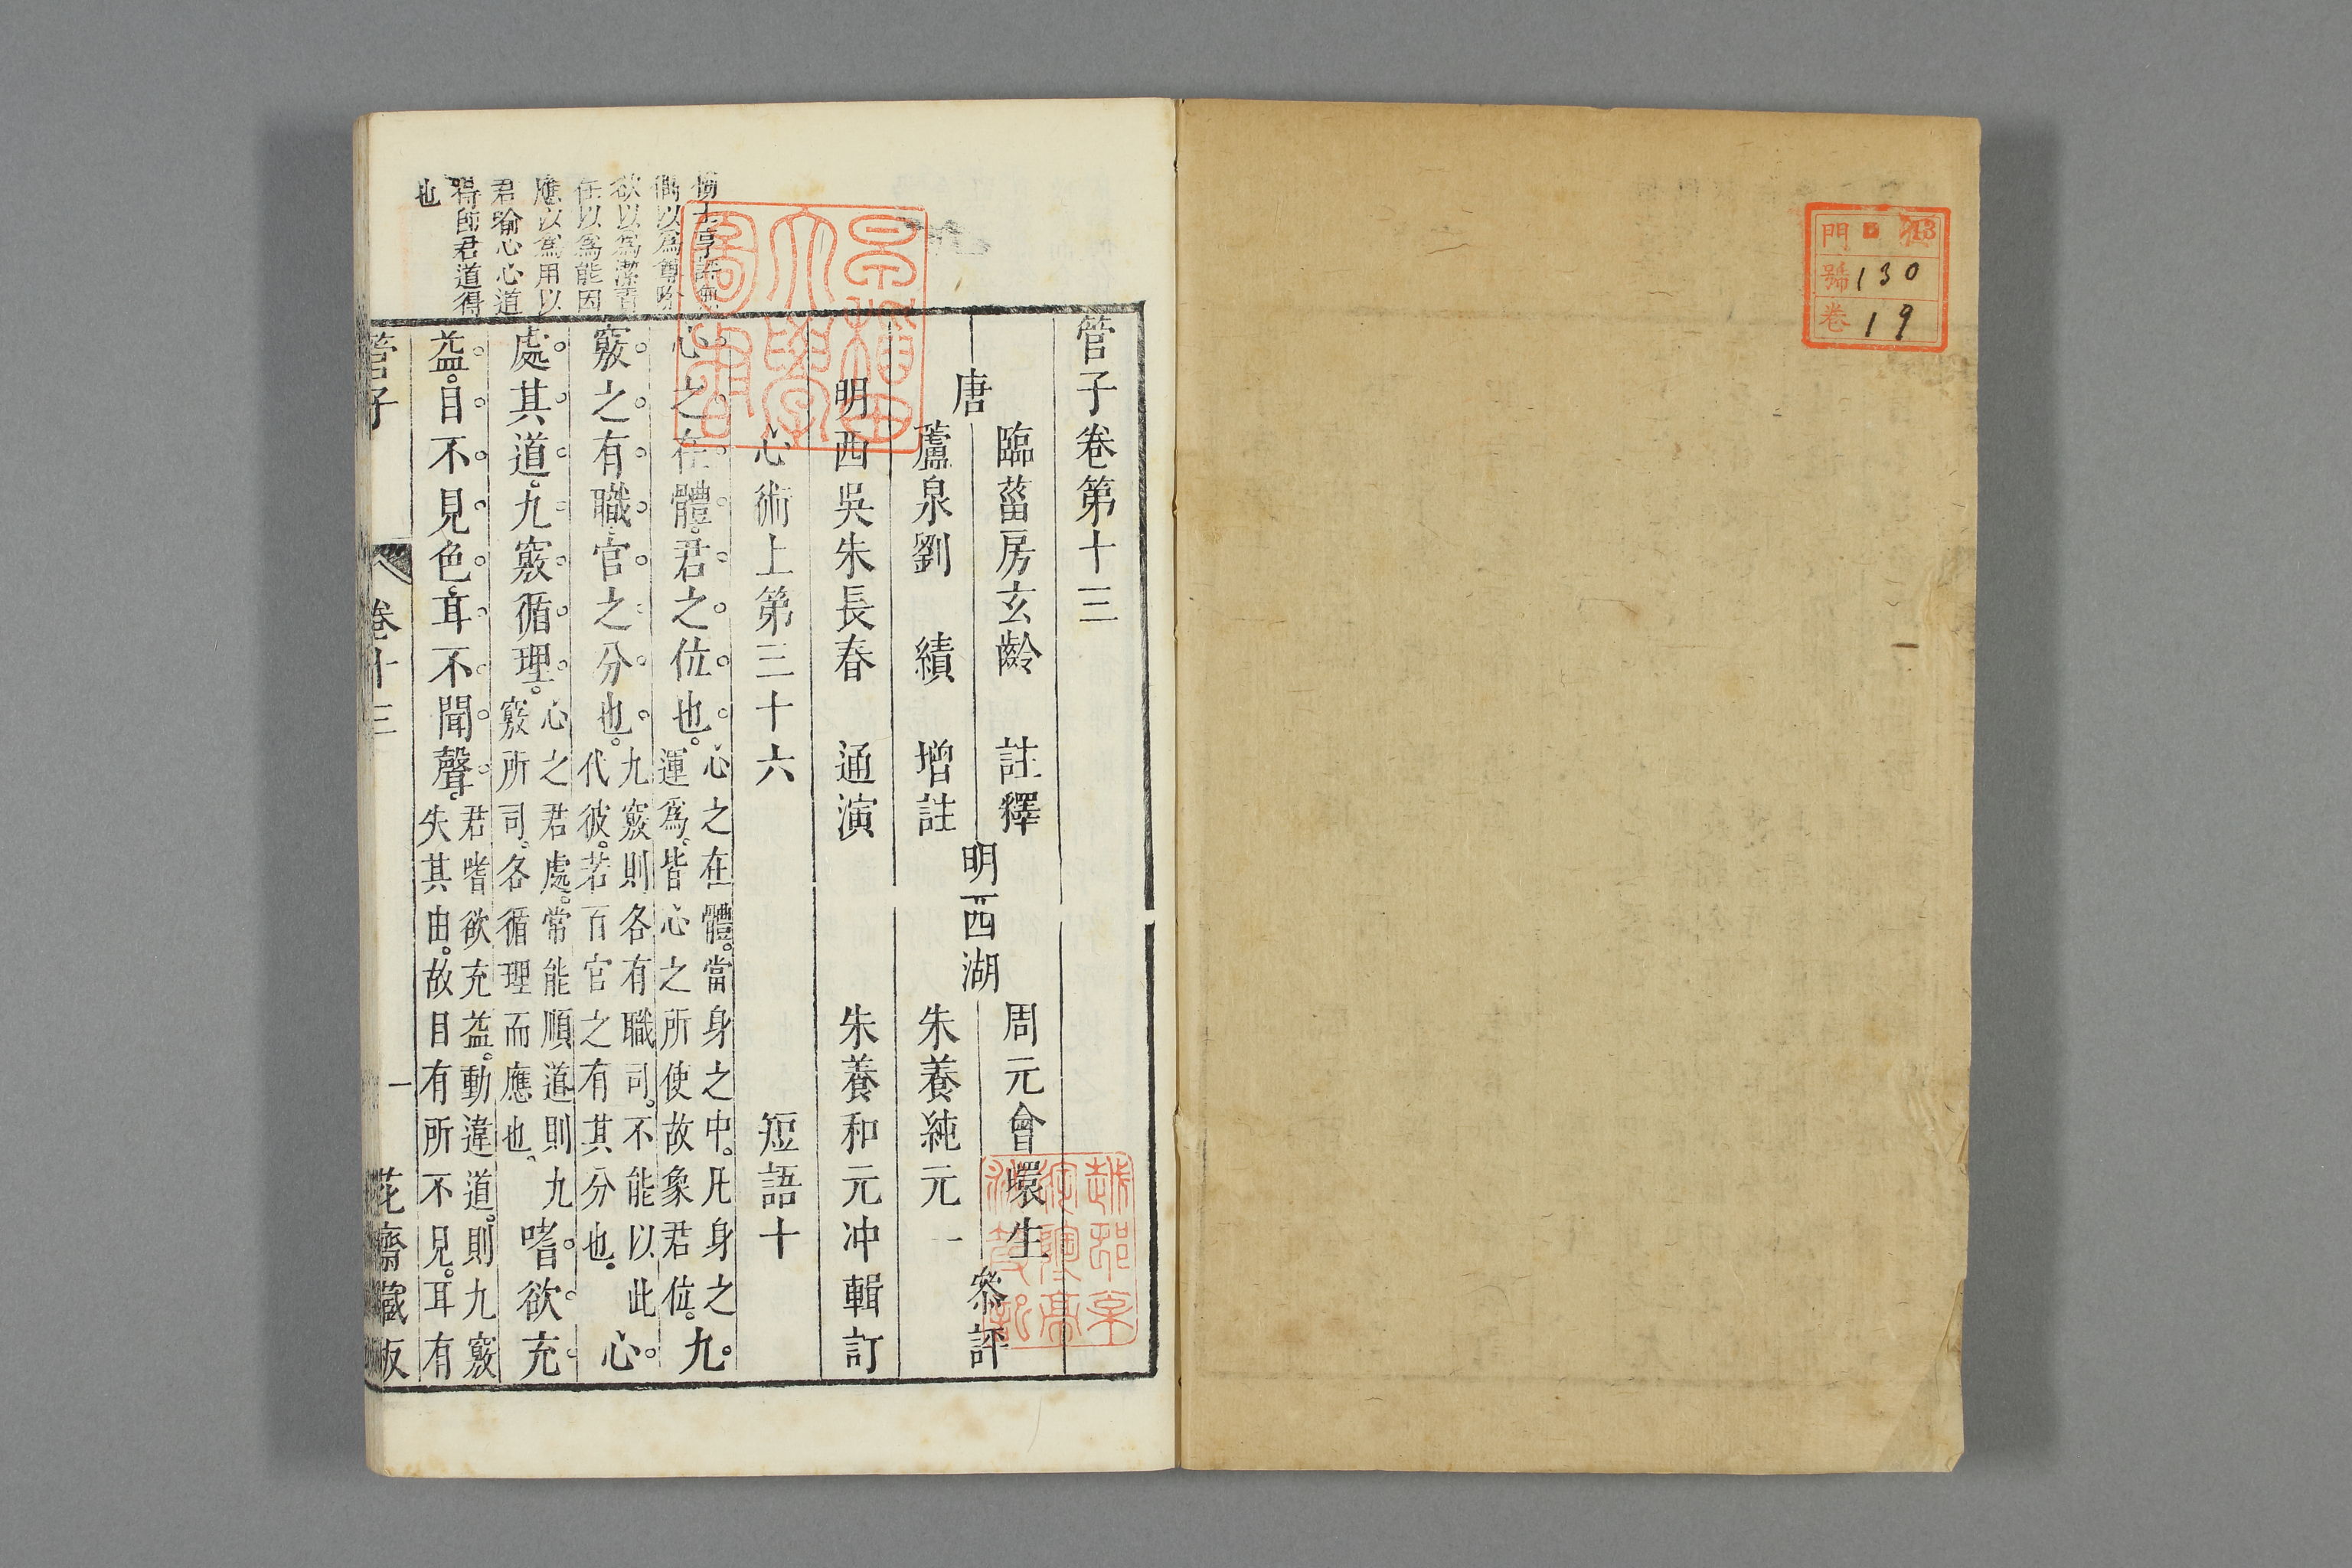 門 13
號 130
卷 19
管子卷第十三
唐
臨菑房玄齡 註釋
蘆泉劉 績 增註
明西吳朱長春 通演
明西湖
周元會環生
朱養純元一
參評
朱養和元冲輯訂
心術上第三十六 短語十
心之在體。君之位也。心之在體。當身之中。凡身之運爲。皆心之所使故象君位。九
竅之有職。官之分也。九竅則各有職司。不能以此代彼。若百官之有其分也。心
處其道。九竅循理。心之君處。常能順道則九竅所司。各循理而應也。嗜欲充
益。目不見色。耳不聞聲。君嗜欲充益。動違道。則九竅失其由。故目有所不見。耳有
以爲尊
欲以爲潔
任以爲能因
應以爲用以
君喻心心道
得卽君道得
也
管子 卷十三 一 花齋藏板